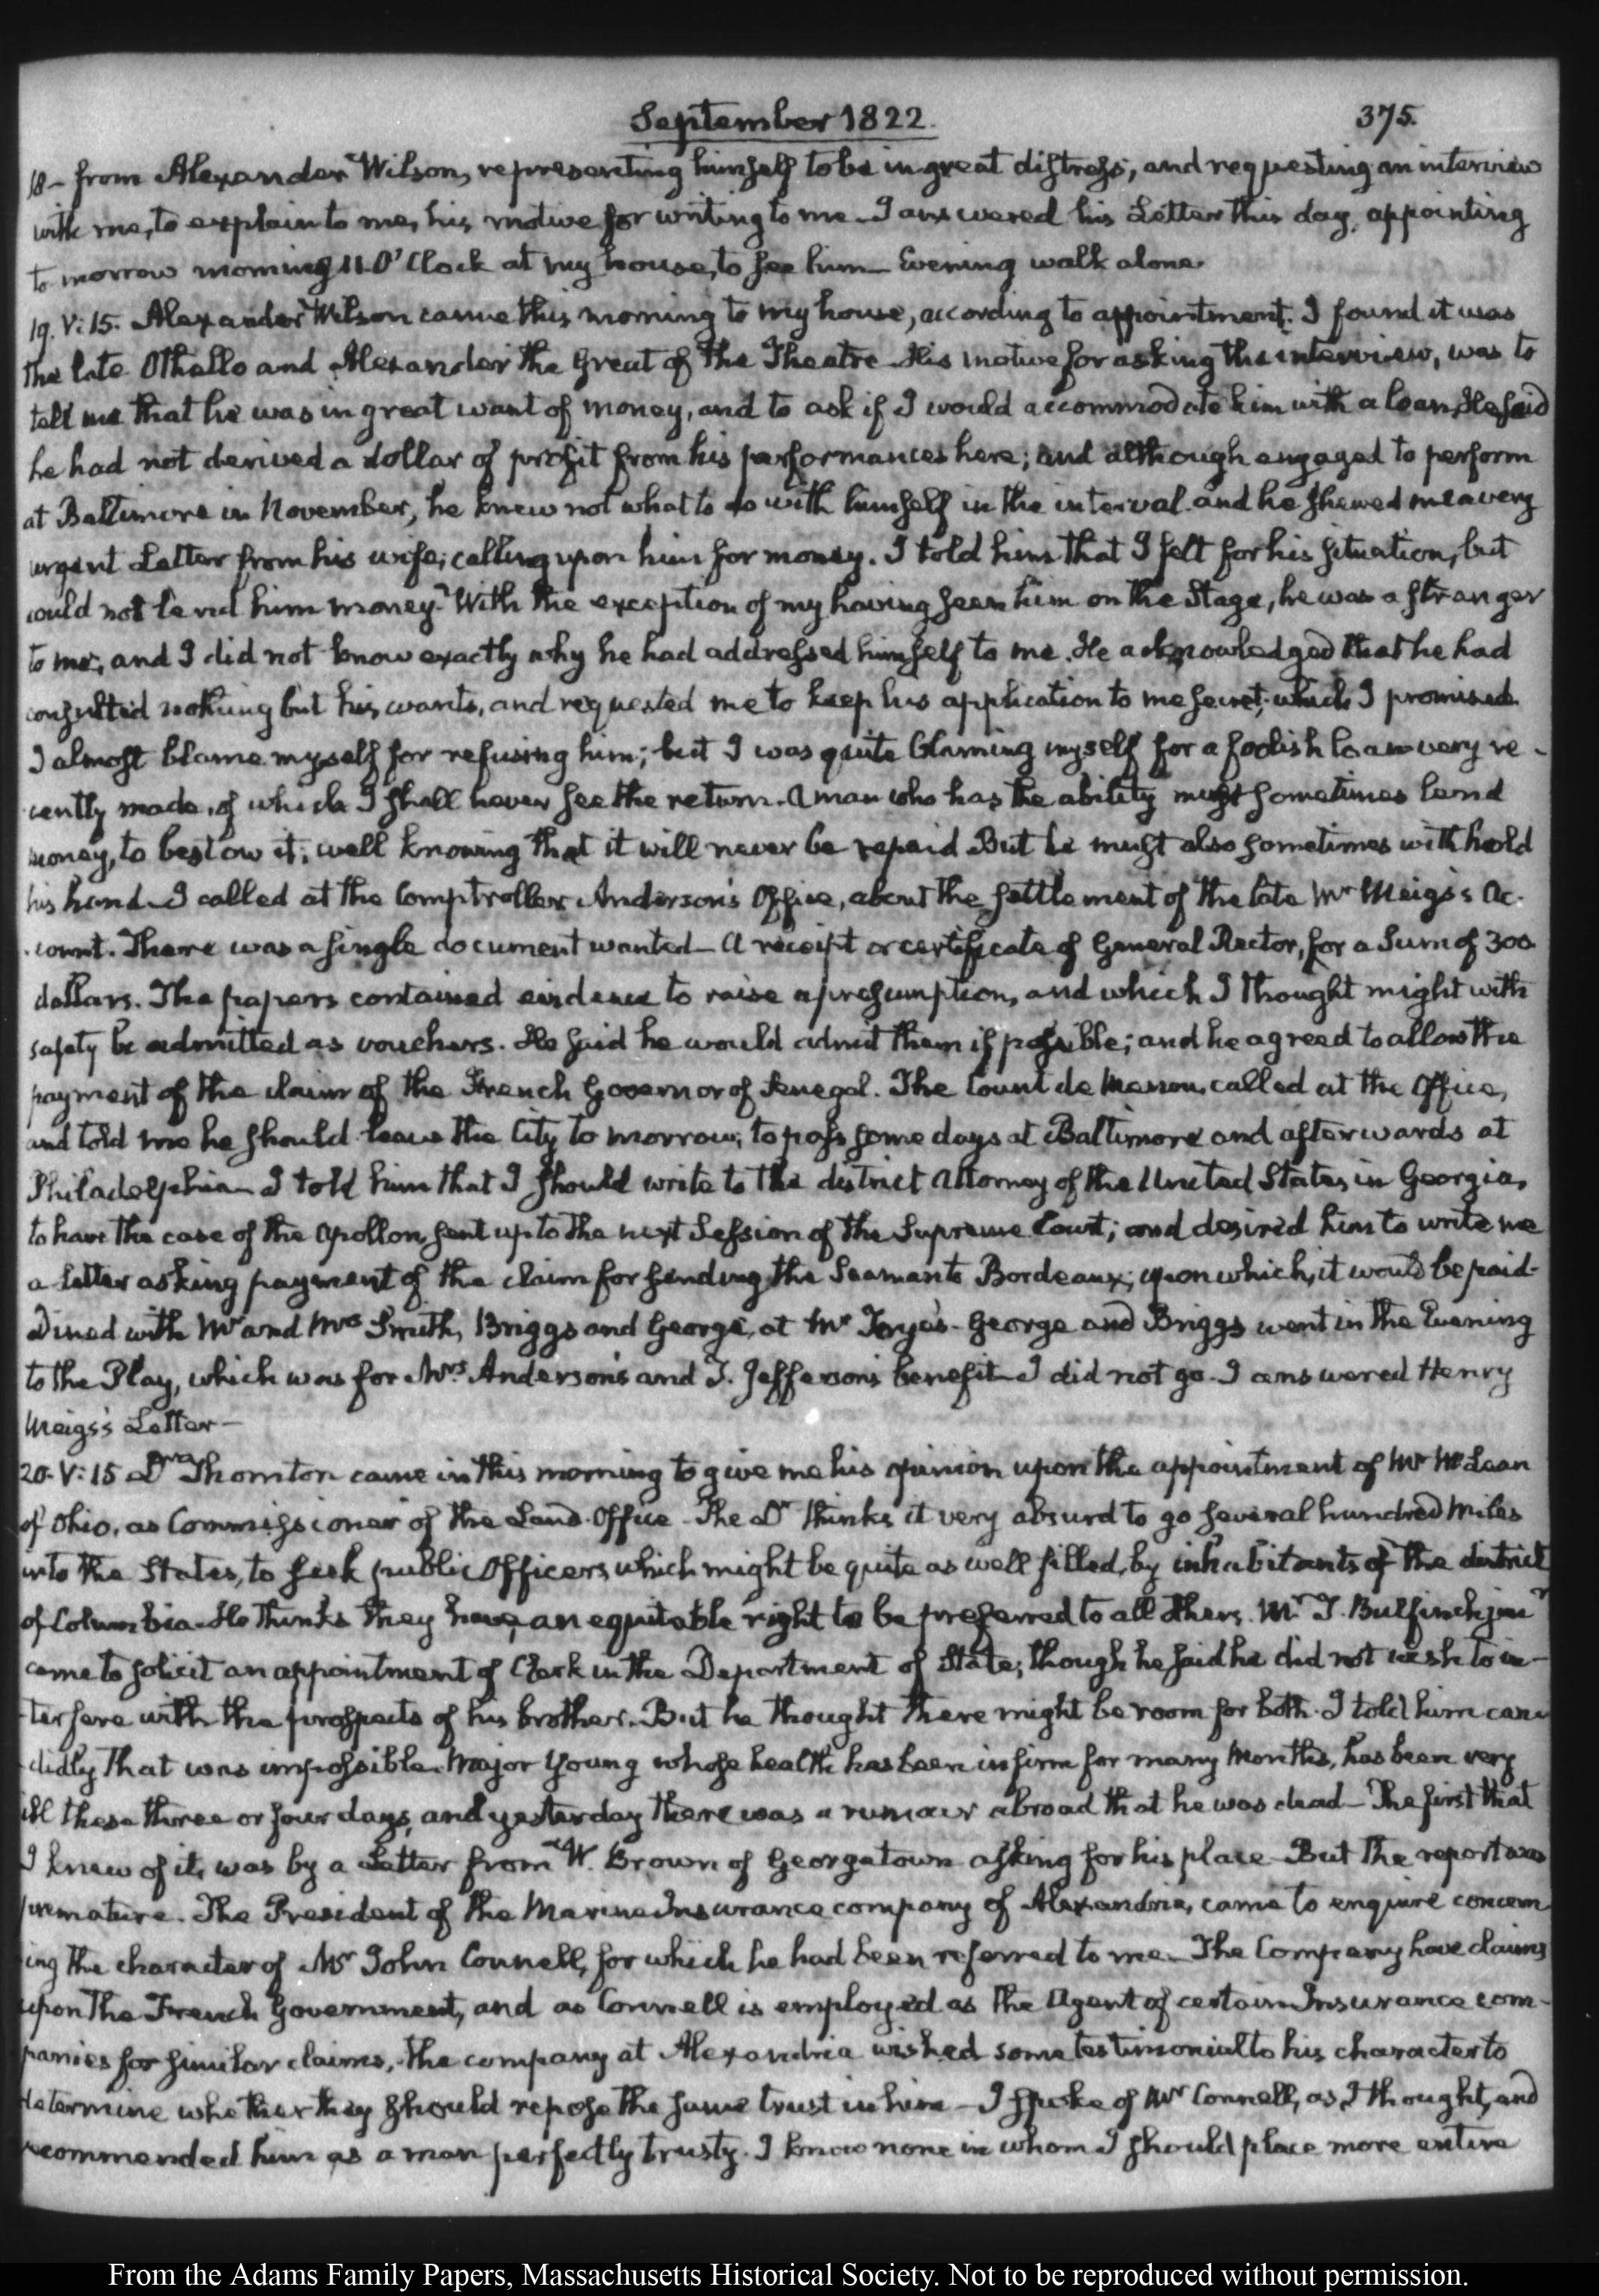 September 1822. 375.
18 - from Alexander Wilson, representing himself to be in great distress, and requesting an interview
with me, to explain to me, his motive for writing to me - I answered his Letter this day, appointing
to morrow morning 11. O'Clock at my house, to see him - Evening walk alone.
19. V: 15. Alexander Wilson came this morning to my house, according to appointment. I found it was
the late Othello and Alexander the Great of the Theatre - His motive for asking the interview, was to
tell me that he was in great want of money, and to ask if I would accommodate him with a loan, He said
he had not derived a dollar of profit from his performances here; and although engaged to perform
at Baltimore in November, he knew not what to do with himself in the interval. and he shewed me a very
urgent Letter from his wife, calling upon him for money. I told him that I felt for his situation, but
could not lend him money. With the exception of my having seen him on the Stage, he was a stranger
to me; and I did not know exactly why he had addressed himself to me. He acknowledged that he had
consulted nothing but his wants, and requested me to keep his application to me secret; which I promised.
I almost blame myself for refusing him; but I was quite blaming myself for a foolish loan very re-
cently made, of which I shall never see the return. A man who has the ability must sometimes lend
money, to bestow it; well knowing that it will never be repaid - But he must also sometimes withhold
his hand - I called at the Comptroller Anderson's Office, about the settlement of the late Mr Meigs's Ac-
count. There was a single document wanted - A receipt or certificate of General Rector, for a Sum of 300
dollars. The papers contained evidence to raise a presumption, and which I thought might with
safety be admitted as vouchers. He said he would admit them if possible; and he agreed to allow the
payment of the claim of the French Governor of Senegal. The Count de Menou, called at the Office,
and told me he should leave the City to morrow; to pass some days at Baltimore and afterwards at
Philadelphia - I told him that I should write to the district Attorney of the United States in Georgia,
to have the case of the Apollon, sent up to the next Session of the Supreme Court; and desired him to write me
a letter asking payment of the claim for sending the Seamen to Bordeaux; upon which, it would be paid -
Dined with Mr and Mrs Smith, Briggs and George, at Mr Frye's - George and Briggs went in the Evening
to the Play, which was for Mrs Anderson's and J. Jefferson's benefit - I did not go - I answered Henry
Meigs's Letter -
20. V: 15 Dr Thornton came in this morning to give me his opinion upon the appointment of Mr McLean
of Ohio, as Commissioner of the Land-Office - The Dr thinks it very absurd to go several hundred miles
into the States, to seek public Officers, which might be quite as well filled, by inhabitants of the district
of Columbia - He thinks they have, an equitable right to be preferred to all others. Mr T. Bulfinch junr
came to solicit an appointment of Clerk in the Department of State; though he said he did not wish to in-
terfere with the prospects of his brother. But he thought there might be room for both. I told him can-
didly that was impossible. Major Young whose health has been infirm for many Months, has been very
ill these three or four days, and yesterday there was a rumour abroad that he was dead - The first that
I knew of it, was by a Letter from W. Brown of Georgetown asking for his place - But the report was
premature. The President of the Marine Insurance company of Alexandria, came to enquire concern-
ing the character of Mr John Connell, for which he had been referred to me - The Company have claims
upon the French Government, and as Connell is employed as the Agent of certain Insurance com-
panies for similar claims, the company at Alexandria wished some testimonial to his character to
determine whether they should repose the same trust in him - I spoke of Mr Connell, as I thought, and
recommended him as a man perfectly trusty. I know none in whom I should place more entire
From the Adams Family Papers, Massachusetts Historical Society. Not to be reproduced without permission.